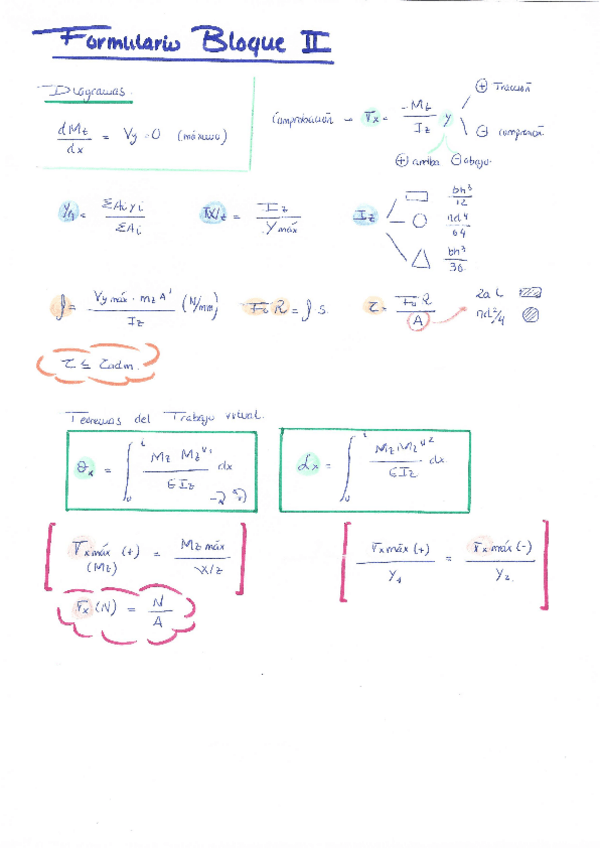 Formulario Bloque II
Diagramas.
dMz/dx = Vy = 0 (máximo)
Comprobación → σx = -Mz/Iz y
⊕ Tracción
⊖ compresión
⊕ arriba ⊖ abajo.
yG = ΣAiyi/ΣAi
Wz = Iz/Ymáx
Iz
bh³/12
πd⁴/64
bh³/36.
f = Vy máx · mz A'/Iz (N/mm)
Fr R = f s.
τ = Fr R/A
2a L
πd²/4
τ ≤ τadm.
Teoremas del Trabajo virtual.
θx = ∫₀ᴸ Mz Mzᵛ¹/EIz dx
δx = ∫₀ᴸ Mz Mzᵛ²/EIz dx.
σx máx (+) = Mz máx/Wz
(Mz)
σx máx (+)/Y1 = σx máx (-)/Y2.
σx (N) = N/A